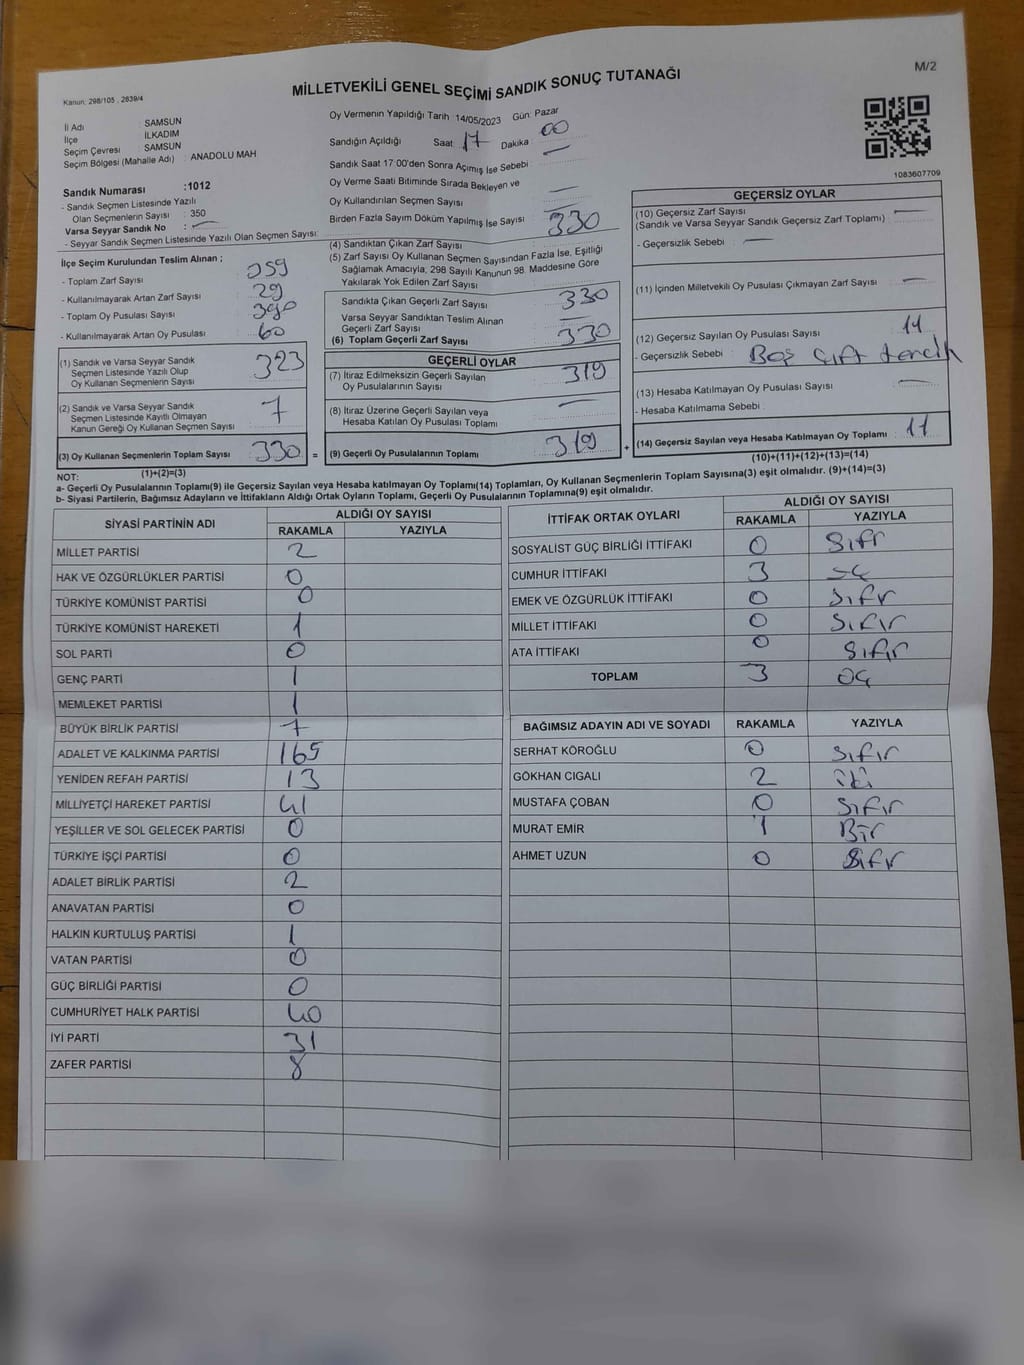 M/2
Kanun: 298/105 , 2839/4
MİLLETVEKİLİ GENEL SEÇİMİ SANDIK SONUÇ TUTANAĞI
İl Adı SAMSUN
İlçe İLKADIM
Seçim Çevresi SAMSUN
Seçim Bölgesi (Mahalle Adı) : ANADOLU MAH
Sandık Numarası :1012
- Sandık Seçmen Listesinde Yazılı
Olan Seçmenlerin Sayısı : 350
Varsa Seyyar Sandık No :
- Seyyar Sandık Seçmen Listesinde Yazılı Olan Seçmen Sayısı:
Oy Vermenin Yapıldığı Tarih 14/05/2023 Gün: Pazar
Sandığın Açıldığı Saat 17 Dakika 00
Sandık Saat 17 00'den Sonra Açımış İse Sebebi —
Oy Verme Saati Bitiminde Sırada Bekleyen ve
Oy Kullandırılan Seçmen Sayısı —
Birden Fazla Sayım Döküm Yapılmış İse Sayısı —
1083607709
İlçe Seçim Kurulundan Teslim Alınan ;
- Toplam Zarf Sayısı 359
- Kullanılmayarak Artan Zarf Sayısı 29
- Toplam Oy Pusulası Sayısı 390
- Kullanılmayarak Artan Oy Pusulası 60
(1) Sandık ve Varsa Seyyar Sandık
Seçmen Listesinde Yazılı Olup
Oy Kullanan Seçmenlerin Sayısı 323
(2) Sandık ve Varsa Seyyar Sandık
Seçmen Listesinde Kayıtlı Olmayan
Kanun Gereği Oy Kullanan Seçmen Sayısı 7
(3) Oy Kullanan Seçmenlerin Toplam Sayısı 330
(1)+(2)=(3)
(4) Sandıktan Çıkan Zarf Sayısı 330
(5) Zarf Sayısı Oy Kullanan Seçmen Sayısından Fazla İse, Eşitliği
Sağlamak Amacıyla, 298 Sayılı Kanunun 98. Maddesine Göre
Yakılarak Yok Edilen Zarf Sayısı
Sandıkta Çıkan Geçerli Zarf Sayısı 330
Varsa Seyyar Sandıktan Teslim Alınan
Geçerli Zarf Sayısı —
(6) Toplam Geçerli Zarf Sayısı 330
GEÇERLİ OYLAR
(7) İtiraz Edilmeksizin Geçerli Sayılan
Oy Pusulalarının Sayısı 319
(8) İtiraz Üzerine Geçerli Sayılan veya
Hesaba Katılan Oy Pusulası Toplamı —
= (9) Geçerli Oy Pusulalarının Toplamı 319 +
GEÇERSİZ OYLAR
(10) Geçersiz Zarf Sayısı —
(Sandık ve Varsa Seyyar Sandık Geçersiz Zarf Toplamı)
- Geçersizlik Sebebi : —
(11) İçinden Milletvekili Oy Pusulası Çıkmayan Zarf Sayısı —
(12) Geçersiz Sayılan Oy Pusulası Sayısı 11
- Geçersizlik Sebebi : Boş Çift tercih
(13) Hesaba Katılmayan Oy Pusulası Sayısı —
- Hesaba Katılmama Sebebi :
(14) Geçersiz Sayılan veya Hesaba Katılmayan Oy Toplamı 11
(10)+(11)+(12)+(13)=(14)
NOT:
a- Geçerli Oy Pusulalarının Toplamı(9) ile Geçersiz Sayılan veya Hesaba katılmayan Oy Toplamı(14) Toplamları, Oy Kullanan Seçmenlerin Toplam Sayısına(3) eşit olmalıdır. (9)+(14)=(3)
b- Siyasi Partilerin, Bağımsız Adayların ve İttifakların Aldığı Ortak Oyların Toplamı, Geçerli Oy Pusulalarının Toplamına(9) eşit olmalıdır.
SİYASİ PARTİNİN ADI ALDIĞI OY SAYISI
RAKAMLA YAZIYLA
MİLLET PARTİSİ 2
HAK VE ÖZGÜRLÜKLER PARTİSİ 0
TÜRKİYE KOMÜNİST PARTİSİ 0
TÜRKİYE KOMÜNİST HAREKETİ 1
SOL PARTİ 0
GENÇ PARTİ 1
MEMLEKET PARTİSİ 1
BÜYÜK BİRLİK PARTİSİ 7
ADALET VE KALKINMA PARTİSİ 165
YENİDEN REFAH PARTİSİ 13
MİLLİYETÇİ HAREKET PARTİSİ 41
YEŞİLLER VE SOL GELECEK PARTİSİ 0
TÜRKİYE İŞÇİ PARTİSİ 0
ADALET BİRLİK PARTİSİ 2
ANAVATAN PARTİSİ 0
HALKIN KURTULUŞ PARTİSİ 1
VATAN PARTİSİ 0
GÜÇ BİRLİĞİ PARTİSİ 0
CUMHURİYET HALK PARTİSİ 40
İYİ PARTİ 31
ZAFER PARTİSİ 8
İTTİFAK ORTAK OYLARI ALDIĞI OY SAYISI
RAKAMLA YAZIYLA
SOSYALİST GÜÇ BİRLİĞİ İTTİFAKI 0 Sıfır
CUMHUR İTTİFAKI 3 üç
EMEK VE ÖZGÜRLÜK İTTİFAKI 0 Sıfır
MİLLET İTTİFAKI 0 Sıfır
ATA İTTİFAKI 0 Sıfır
TOPLAM 3 üç
BAĞIMSIZ ADAYIN ADI VE SOYADI RAKAMLA YAZIYLA
SERHAT KÖROĞLU 0 Sıfır
GÖKHAN CIGALI 2 iki
MUSTAFA ÇOBAN 0 Sıfır
MURAT EMİR 1 Bir
AHMET UZUN 0 Sıfır